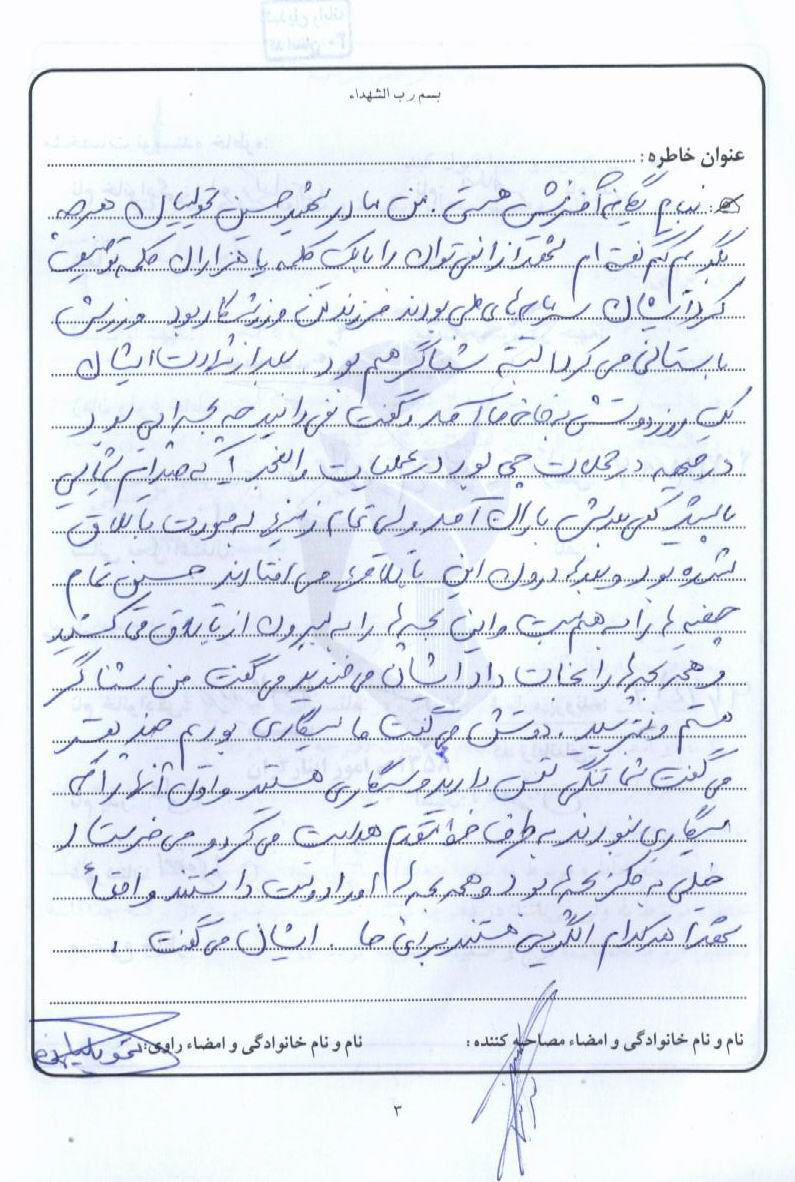 بسم رب الشهداء
عنوان خاطره :
بنام یگانه آفرینش هستی . من مادر شهید حسین تحویلیان هر چه
بگویم کم گفته ام شهدا را نمی توان با یک کلمه یا هزاران کلمه توصیف
کرد ایشان سرمایه های ملی بودند فرزند من ورزشکار بود ورزش
باستانی می کرد البته شناگر هم بود بعد از شهادت ایشان
یک روز دوستش به خانه ما آمد و گفت نمی دانید چه بحرانی بود
در جبهه در حملات چی بود در عملیات والفجر
بارش باران آمد ولی تمام زمینها به صورت باتلاق
شده بود و بچه ها درون این باتلاقها می افتادند حسین تمام
چفیه ها را به هم بست و این بچه ها را به بیرون از باتلاق می کشید
و همه بچه ها را نجات داد ایشان می خندید می گفت من شناگر
هستم و نترسید . دوستش می گفت ما سیگاری بودیم
می گفت شما تنگی نفس دارید و سیگاری هستید و اول آنها را که
سیگاری نبودند به طرف خط مقدم هدایت می کرد و می فرستاد
خیلی به فکر بچه ها بود و همه بچه ها او را دوست داشتند واقعاً
شهدا هر کدام الگویی هستند برای ما . ایشان می گفت .
نام و نام خانوادگی و امضاء مصاحبه کننده : نام و نام خانوادگی و امضاء راوی:
۳